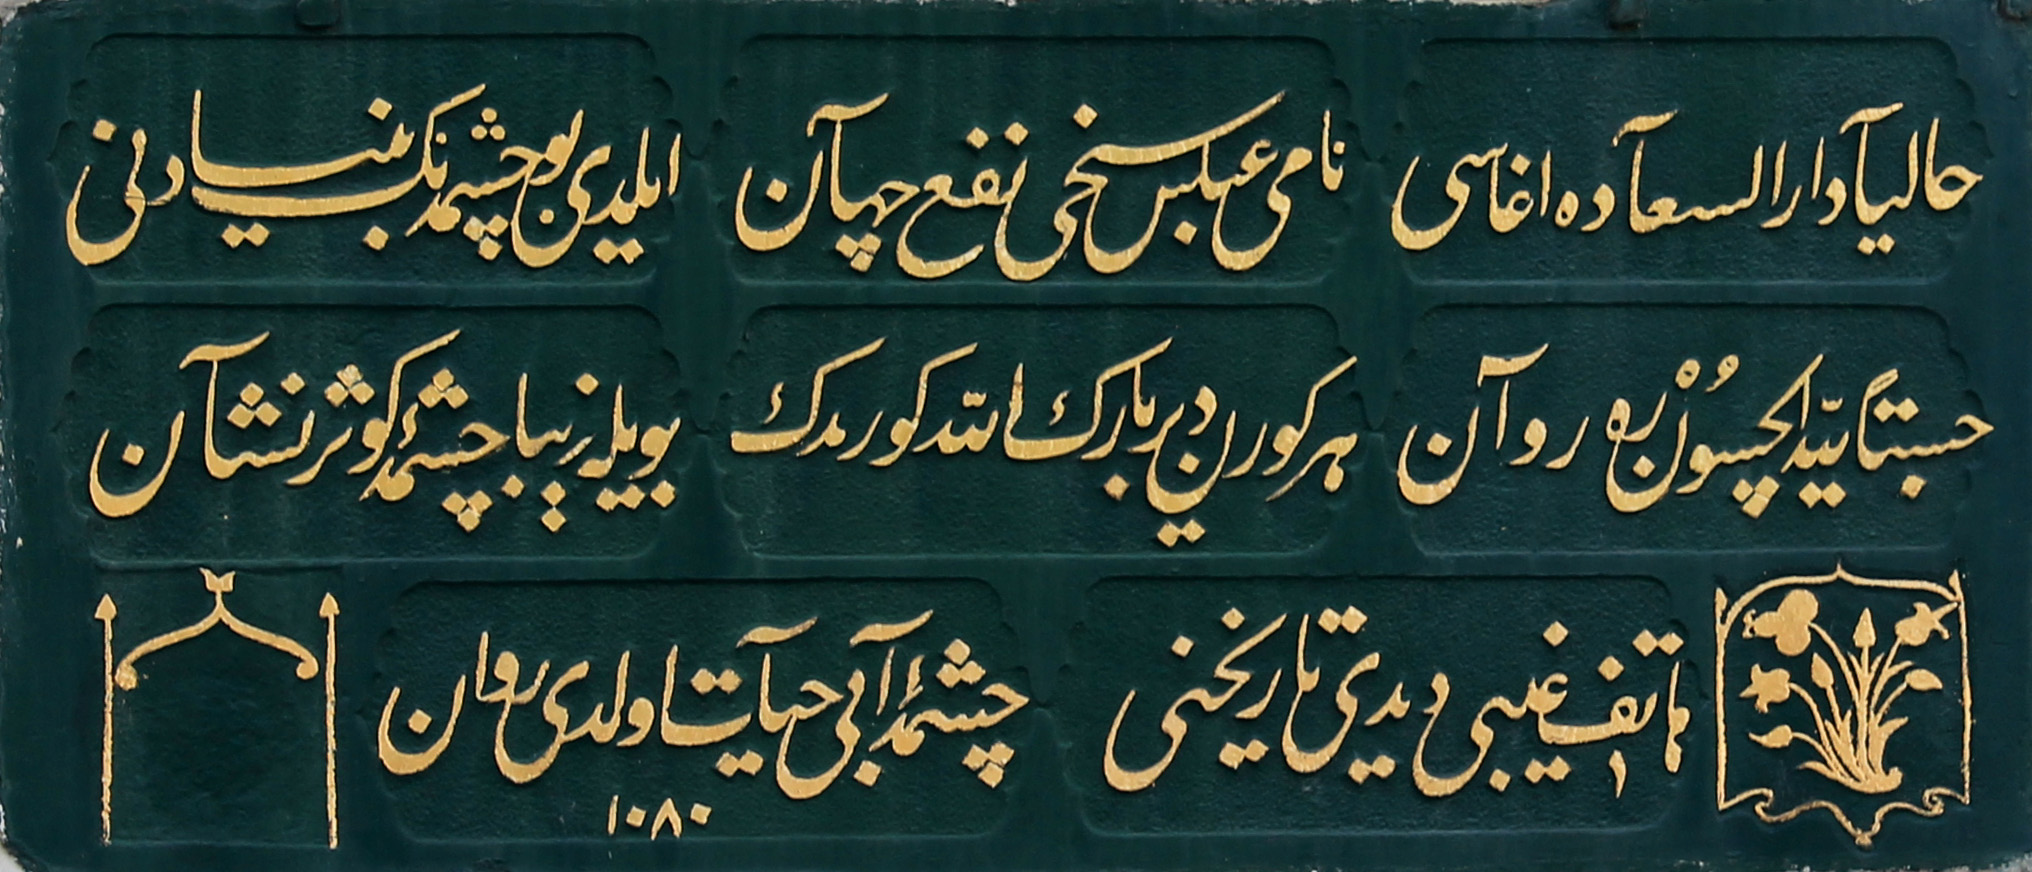 حاليا دار السعاده اغاسى
نامى عباس سخى نفع جهان
ايلدى بو چشمه نك بنيادنى
حسبتا لله ايچسون ره روان
هر كورن دير بارك الله كورمدك
بويله زيبا چشمهٔ كوثر نشان
هاتف غيبى ديدى تاريخنى
چشمهٔ آبى حيات اولدى روان
١٠٨٠